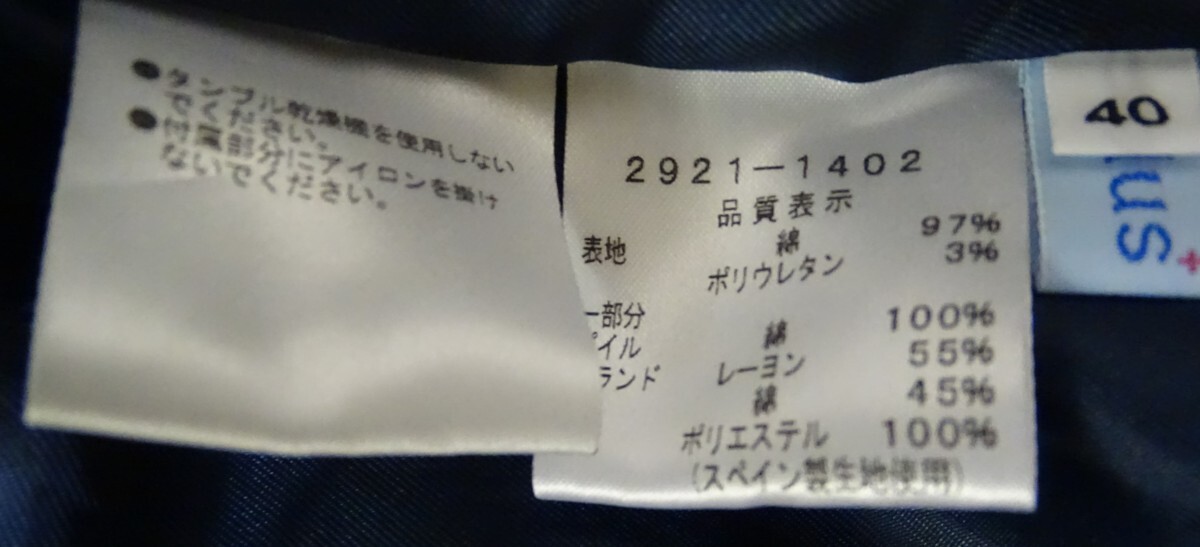 ●タンブル乾燥機を使用しない
でください。
●付属部分にアイロンを掛け
ないでください。
2921-1402
品質表示
表地 綿 97%
ポリウレタン 3%
一部分 綿 100%
イル レーヨン 55%
ランド 綿 45%
ポリエステル 100%
(スペイン製生地使用)
40
lus+